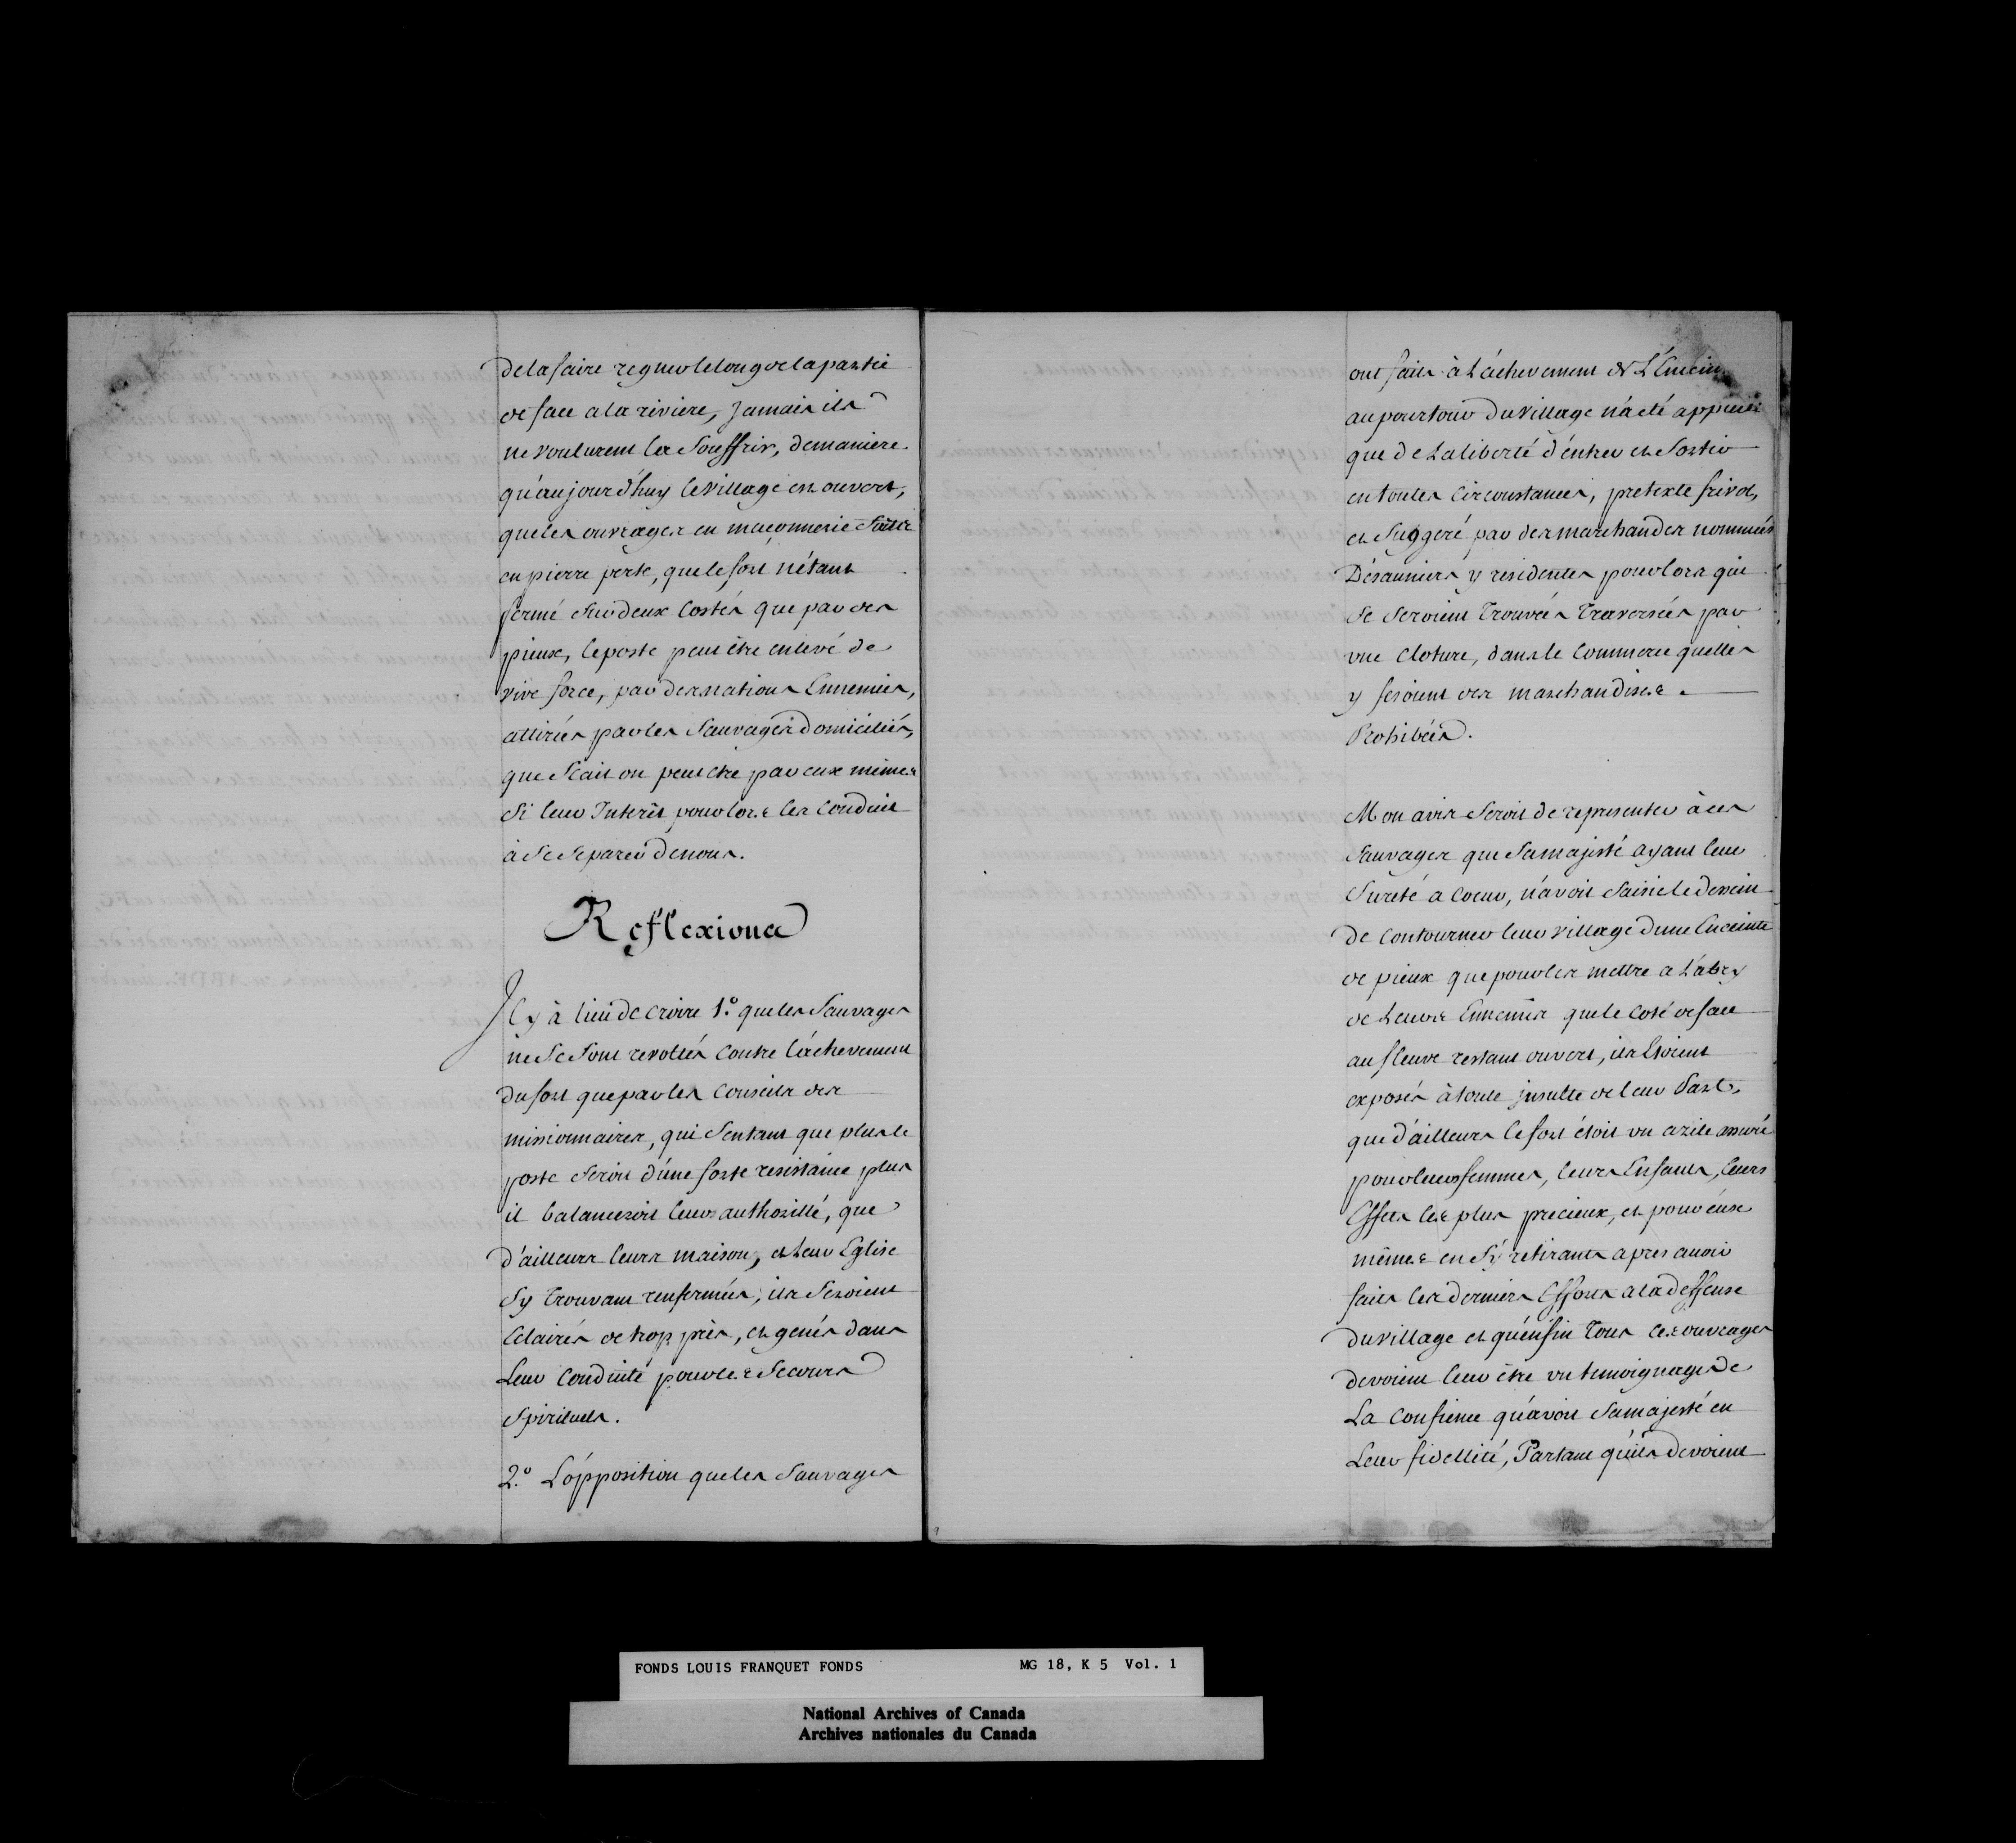 de la faire regner le long de la partie
de face a la riviere, Jamais ils
ne voulurent les Souffrir, de maniere
qu'aujourd'huy le Village est ouvert,
que les ouvrages en maçonnerie Sont
en pierre perte, que le fort n'étant
fermé Sur deux Costés que par des
pieux, le poste peut être enlevé de
vive force, par des nations Ennemies,
attirées par les Sauvages Domiciliés,
que Scait on peut etre par eux mêmes
Si leur Interêt pour lors les Conduit
à Se Separer de nous.
Reflexions
Il y à lieu de croire 1.º que les Sauvages
ne Se Sont revoltés Contre l'achevement
du fort que par les Conseils des
missionnaires, qui Sentant que plus le
poste Seroit d'une forte resistance plus
il balanceroit leurs authoritté, que
d'ailleurs leurs maison, et leur Eglise
Sy trouvant renfermées, ils Seroient
Eclairés de trop près, et genés dans
Leur Conduite pour les Secours
Spirituels.
2.º L'opposition que les Sauvages
ont faits à L'achevement de L'Encein
au pourtour du Village n'a eté appuié
que de La liberté d'entrer et Sortir
en toutes Circonstances, pretexte frivol,
et Suggeré par des marchandes nommées
Désauniers y residentes pour lors qui
Se Seroient trouvées traversées par
une Cloture, dans le Commerce quelles
y feroient des marchandises
Prohibées.
Mon avis Seroit de representer à ces
Sauvages que Sa majesté ayant leur
Sureté a Coeur, n'avoit Saisi le dessein
de Contourner leur Village d'une Enceinte
de pieux que pour les mettre a L'abry
de Leurs Ennemis que le Costé de face
au fleuve restant ouvert, ils Etoient
exposés à toute jnsulte de leur Part,
que d'ailleurs le fort étoit un azile assuré
pour leurs femmes, leurs Enfants, leurs
Effets les plus precieux, et pour éux
mêmes en S'y retirants apres avoir
faits les derniers Efforts a la deffense
du Village et qu'enfin tous Ces ouvrages
devoient leur être un temoignage de
La Confience qu'avoit Sa majesté en
Leur fidellité, Partant qu'ils devoient
FONDS LOUIS FRANQUET FONDS MG 18, K 5 Vol. 1
National Archives of Canada
Archives nationales du Canada